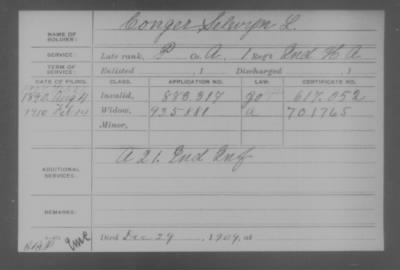 NAME OF SOLDIER: Conger Selwyn L.
SERVICE: Late rank, P Co. A, 1 Reg't Ind. H A
TERM OF SERVICE: Enlisted 1 Discharged 1
DATE OF FILING. CLASS. APPLICATION NO. LAW. CERTIFICATE NO.
1890 Aug 4 Invalid, 883.317 617.052
1910 Widow, 935881 a 701765
Minor,
ADDITIONAL SERVICES: A 21. Ind Inf
REMARKS:
Died Dec 29, 1909, at